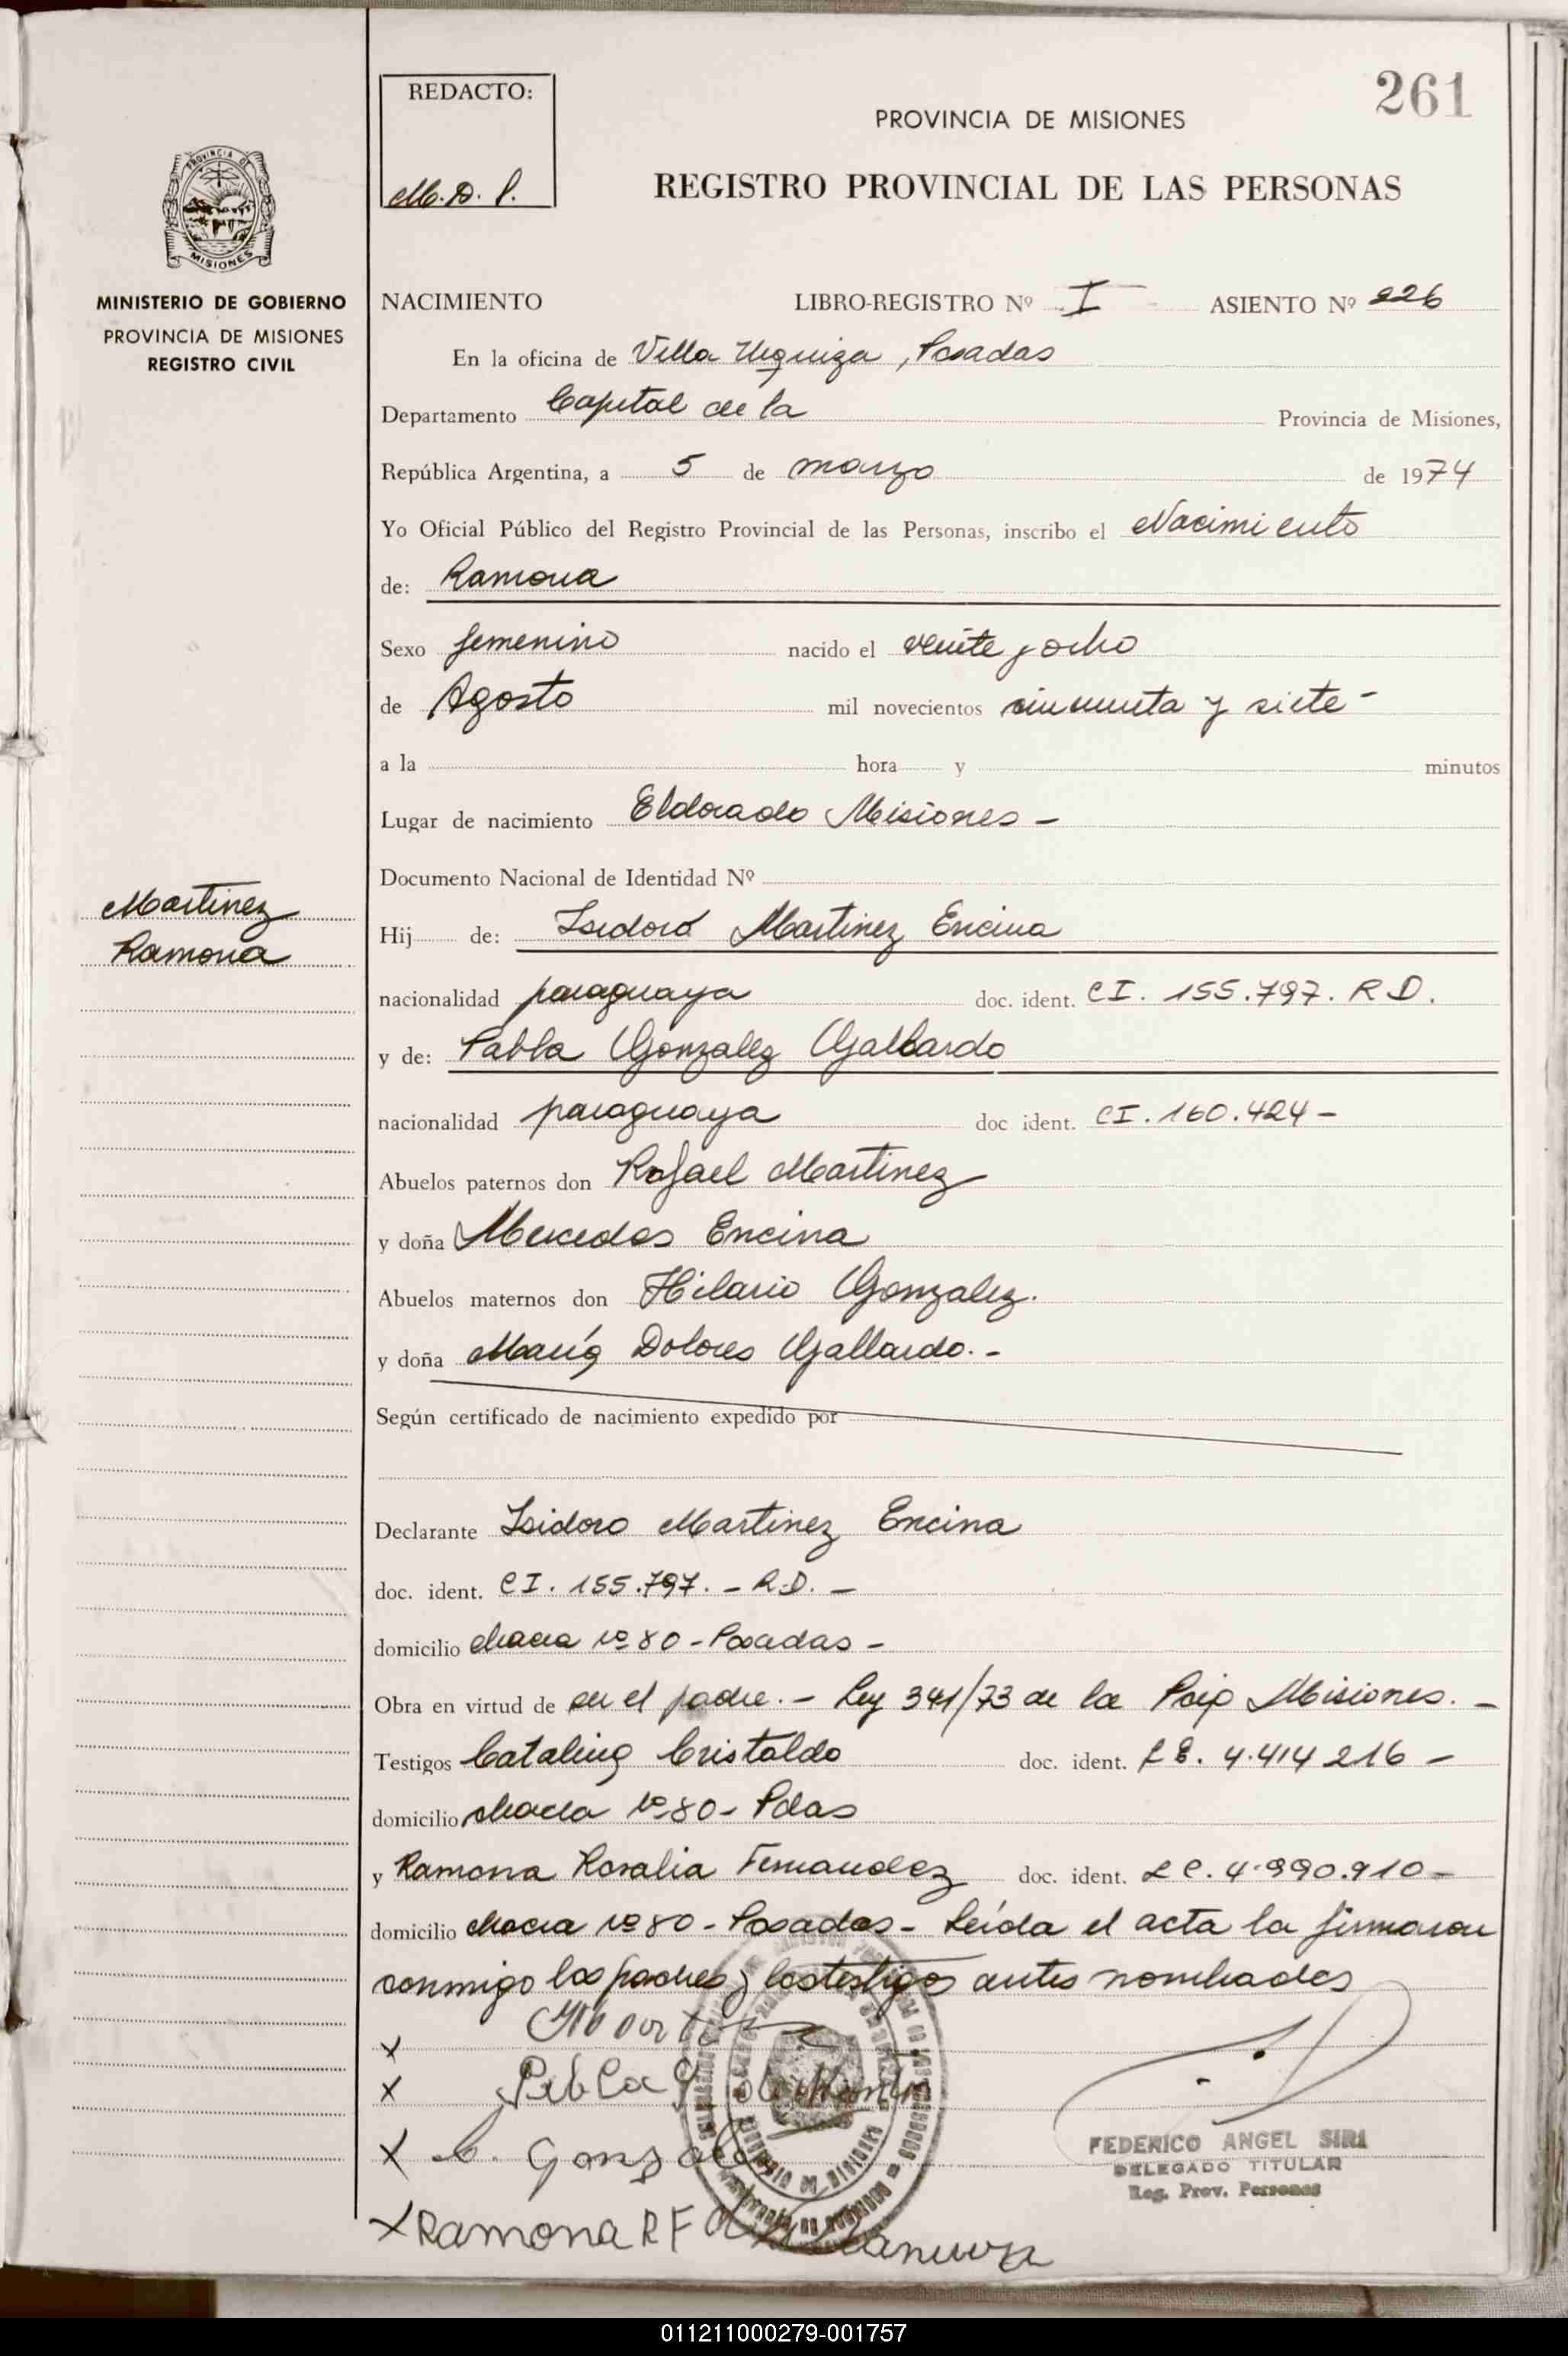 261
REDACTO:
M. D. P.
PROVINCIA DE MISIONES
REGISTRO PROVINCIAL DE LAS PERSONAS
PROVINCIA DE
MISIONES
MINISTERIO DE GOBIERNO
PROVINCIA DE MISIONES
REGISTRO CIVIL
NACIMIENTO LIBRO-REGISTRO Nº I ASIENTO Nº 226
En la oficina de Villa Urquiza, Posadas
Departamento Capital de la Provincia de Misiones,
República Argentina, a 5 de marzo de 1974
Yo Oficial Público del Registro Provincial de las Personas, inscribo el Nacimiento
de: Ramona
Sexo femenino nacido el veinte y ocho
de Agosto mil novecientos cincuenta y siete -
a la hora y minutos
Lugar de nacimiento Eldorado Misiones -
Documento Nacional de Identidad Nº
Martinez
Ramona
Hij de: Isidoro Martinez Encina
nacionalidad paraguaya doc. ident. CI. 155.797. R D.
y de: Pabla Gonzalez Gallardo
nacionalidad paraguaya doc ident. CI. 160.424 -
Abuelos paternos don Rafael Martinez
y doña Mercedes Encina
Abuelos maternos don Hilario Gonzalez.
y doña María Dolores Gallardo. -
Según certificado de nacimiento expedido por
Declarante Isidoro Martinez Encina
doc. ident. CI. 155.797. - R.D. -
domicilio chacra nº 80 - Posadas -
Obra en virtud de ser el padre. - Ley 341/73 de la Pcia Misiones. -
Testigos Catalina Cristaldo doc. ident. 4.414 216 -
domicilio chacra nº 80 - Pdas
y Ramona Rosalia Fernandez doc. ident. LC. 4.990.910 -
domicilio chacra nº 80 - Posadas - Leída el acta la firmaron
conmigo los padres y los testigos antes nombrados
X
X Pabla G
X C. Gonzal
X Ramona R F
FEDERICO ANGEL SIRI
DELEGADO TITULAR
Reg. Prov. Personas
011211000279-001757